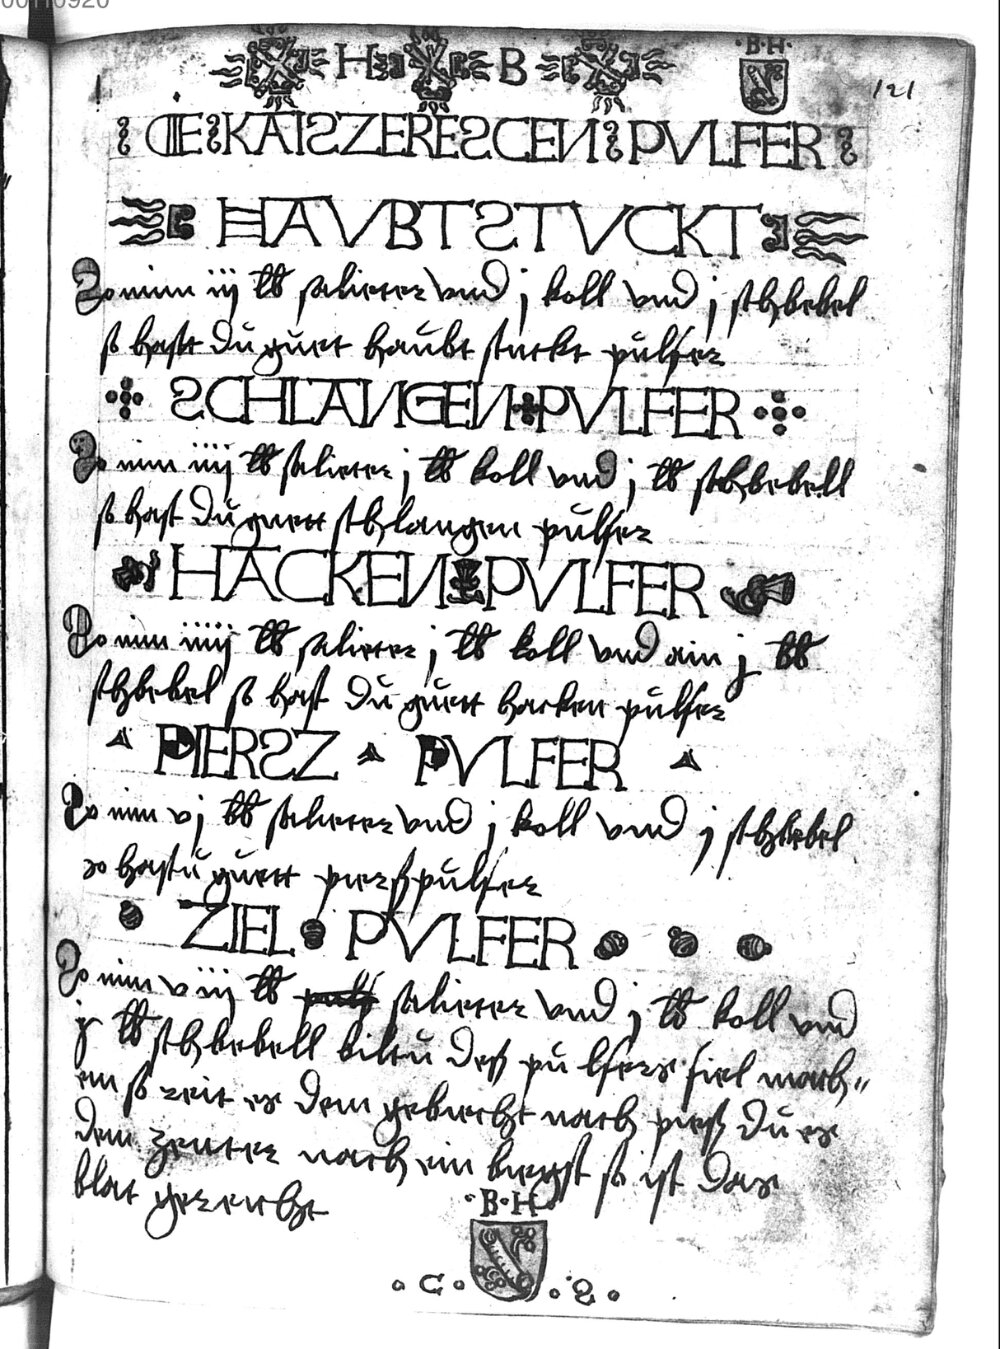 00110920
H B
·B·H·
121
DIE KAISZERESCEN PVLFER
HAVBTSTVCKT
So nim iij lb salieter vnd j koll vnd j schbebel
so hastt du guet haubt stuckt pulfer
SCHLANGEN PVLFER
So nim iiij lb salieter j lb koll vnd j lb schbebell
so hast du guett schlangen pulfer
HACKEN PVLFER
So nim iiiij lb salieter j lb koll vnd ain j lb
schbebel so hast du guett hacken pulfer
PIERSZ PVLFER
So nim vj lb salieter vnd j koll vnd j schbebel
so hastu guett pierschpulfer
ZIEL PVLFER
So nim viij lb salieter vnd j lb koll vnd
j lb schbebell biltu des pulfers fiel mach"
en so zeit es dem gebicht nach du es
dem zenter nach ein so ist das
blat gerecht
·B·H·
·C·S·